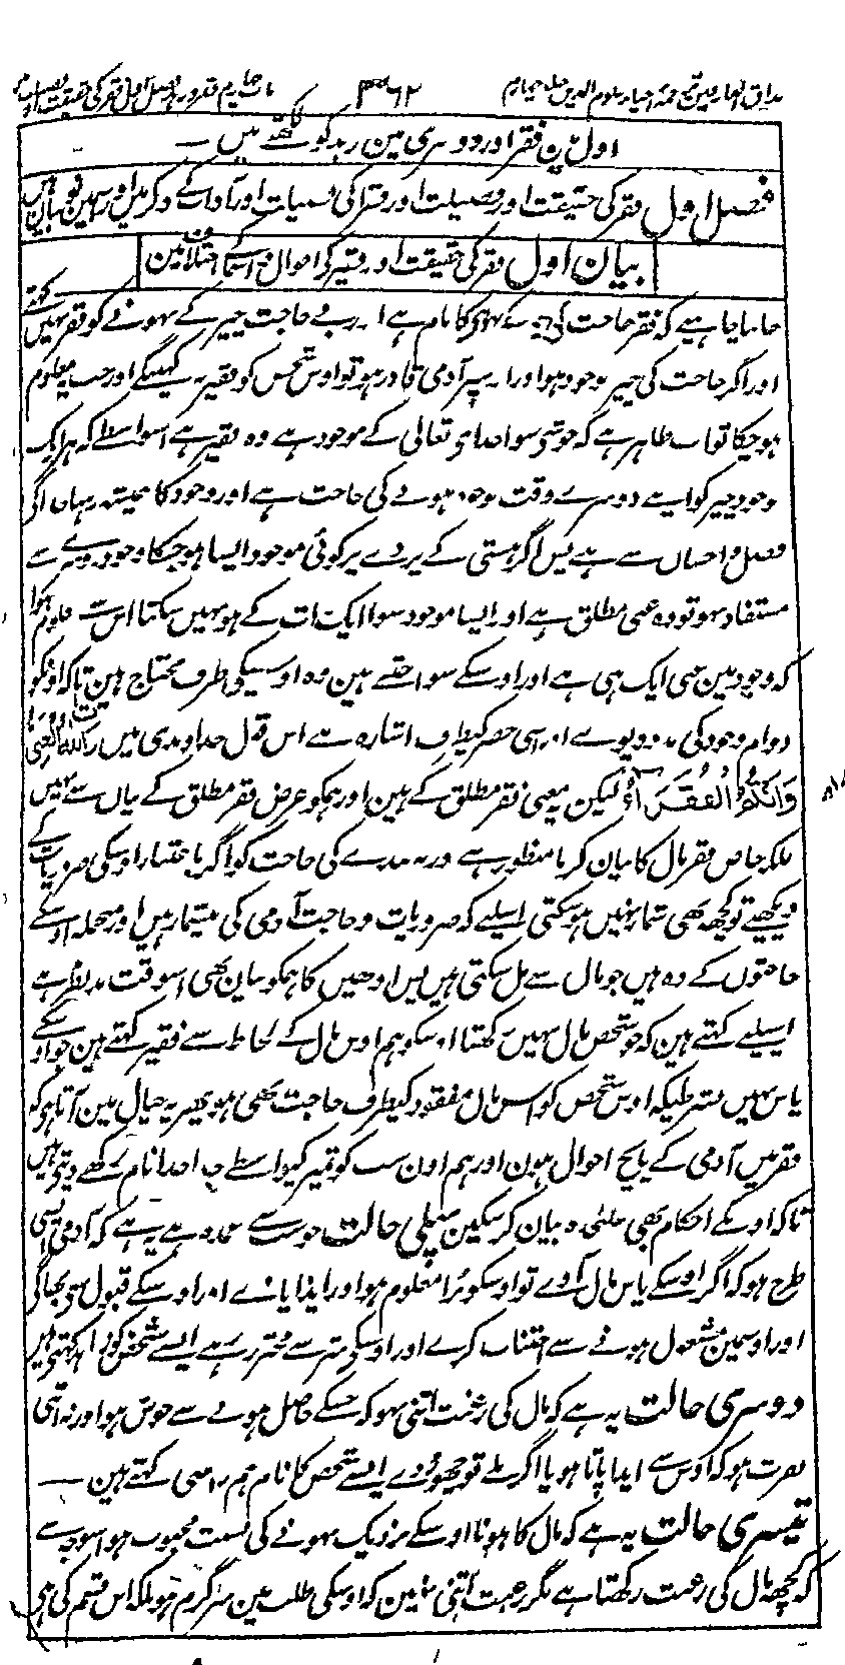 مذاق العارفین ترجمہ احیاء علوم الدین جلد چہارم ۳۶۲ باب چہارم فقر و زہد فصل اول فقر کی حقیقت اور
اول میں فقر اور دوسری مین زہد کو لکھتے ہیں
فصل اول فقر کی حقیقت اور فضیلت اور فقرا کی فضیلت اور آداب کے ذکر میں اور اسمین بیان ہیں
بیان اول فقر کی حقیقت اور فقیر کے احوال و اسما کے اختلاف مین
جاننا چاہیے کہ فقر حاجت کی چیز کے نہونیکا نام ہے اور بے حاجت چیز کے نہونے کو فقر نہیں کہتے
اور اگر حاجت کی چیز موجود ہو اور اسپر آدمی قادر ہو تو اوس شخص کو فقیر نہ کہینگے اور جب یہ معلوم
ہو چکا تو اب ظاہر ہے کہ جو شے سوا خدای تعالی کے موجود ہے وہ فقیر ہے اسواسطے کہ ہر ایک
موجود چیز کو اپنے دوسرے وقت موجود ہونے کی حاجت ہے اور وجود کا ہمیشہ رہنا اللہ کی
فضل و احسان سے ہے پس اگر ہستی کے پردے پر کوئی موجود ایسا ہو جسکا وجود دوسرے سے
مستفاد نہو تو وہ غنی مطلق ہے اور ایسا موجود سوا ایک ذات کے ہو نہیں سکتا اس سے معلوم ہوا
کہ وجود مین غنی ایک ہی ہے اور اوسکے سوا جتنے ہین وہ اوسیکی طرف محتاج ہین تاکہ اونکو
دوام وجود کی مدد دیوے اور اسی حصر کیطرف اشارہ ہے اس قول خداوندی میں واللہ الغنی
وَاَنْتُمُ الْفُقَرَآءُ لیکن یہ معنی فقر مطلق کے ہین اور ہمکو غرض فقر مطلق کے بیان سے نہیں
بلکہ خاص فقر مال کا بیان کرنا منظور ہے ورنہ بندے کی حاجت کو اگر باعتبار اوسکی ضروریات کے
دیکھیے تو کچھ بھی شمار نہیں ہو سکتی اسلیے کہ ضروریات و حاجت آدمی کی بیشمار ہیں اور منجملہ اوسکے
حاجتوں کے وہ ہیں جو مال سے مل سکتی ہیں پس اونھیں کا ہمکو بیان بھی اسوقت مدنظر ہے
اسلیے کہتے ہین کہ جو شخص مال نہیں رکھتا اوسکو ہم اوس مال کے لحاظ سے فقیر کہتے ہین جو اوسکے
پاس نہیں بشرطیکہ اوس شخص کو اوس مال مفقود کیطرف حاجت بھی ہو پھر یہ خیال مین آتا ہے کہ
فقر میں آدمی کے پانچ احوال ہون اور ہم اون سب کو تمیز کیواسطے جدا جدا نام رکھے دیتے ہیں
تاکہ اونکے احکام بھی علیحدہ بیان کر سکین پہلی حالت جو سب سے عمدہ ہے یہ ہے کہ آدمی ایسی
طرح ہو کہ اگر اوسکے پاس مال آوے تو اوسکو برا معلوم ہو اور ایذا پاوے اور اوسکے قبول سے بھاگے
اور اوسمین مشغول ہونے سے اجتناب کرے اور اوسکے شر سے محترز رہے ایسے شخص کو زاہد کہتے ہیں
دوسری حالت یہ ہے کہ مال کی رغبت اتنی نہو کہ جسکے حاصل ہونے سے خوش ہو اور نہ اتنی
نفرت ہو کہ اوس سے ایذا پاتا ہو یا اگر ملے تو چھوڑ دے ایسے شخص کا نام ہم راضی کہتے ہین
تیسری حالت یہ ہے کہ مال کا ہونا اوسکے نزدیک نہونے کی نسبت محبوب ہو اسوجہ سے
کہ کچھ مال کی رغبت رکھتا ہے مگر رغبت اتنی نہین کہ اوسکی طلب مین سرگرم ہو بلکہ اس قسم کی ہے